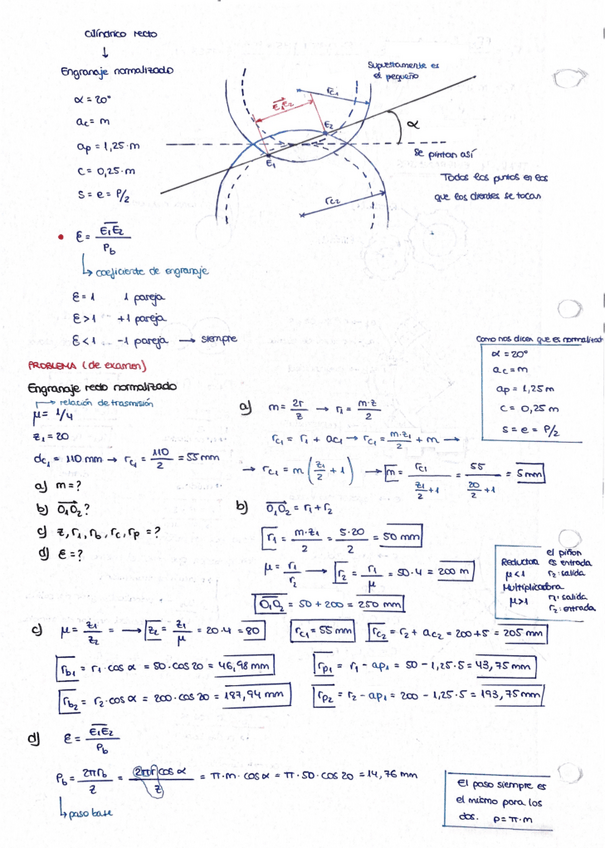 Cilíndrico recto
↓
Engranaje normalizado
α = 20°
ac = m
ap = 1,25·m
c = 0,25·m
s = e = P/2
Supuestamente es
el pequeño
rc1
E1E2
E2
E1
α
Se pintan así
Todos los puntos en los
que los dientes se tocan
rc2
• ε = E1E2 / Pb
↳ coeficiente de engranaje
ε = 1 1 pareja
ε > 1 +1 pareja
ε < 1 -1 pareja → siempre
PROBLEMA (de examen)
Engranaje recto normalizado
→ relación de trasmisión
μ = 1/4
z1 = 20
dc1 = 110 mm → rc1 = 110/2 = 55 mm
a) m = ?
b) O1O2 ?
c) z, r1, rb, rc, rp = ?
d) ε = ?
Como nos dicen que es normalizat
α = 20°
ac = m
ap = 1,25 m
c = 0,25 m
s = e = P/2
a) m = 2r/z → r1 = m·z/2
rc1 = r1 + ac1 → rc1 = m·z1/2 + m →
→ rc1 = m (z1/2 + 1) → m = rc1 / (z1/2 + 1) = 55 / (20/2 + 1) = 5 mm
b) O1O2 = r1 + r2
r1 = m·z1/2 = 5·20/2 = 50 mm
μ = r1/r2 → r2 = r1/μ = 50·4 = 200 m
O1O2 = 50 + 200 = 250 mm
el piñon
Reductora es entrada
μ<1 r2: salida
Multiplicadora
μ>1 r1: salida
r2: entrada
c) μ = z1/z2 = → z2 = z1/μ = 20·4 = 80
rc1 = 55 mm
rc2 = r2 + ac2 = 200+5 = 205 mm
rb1 = r1·cos α = 50·cos 20 = 46,98 mm
rp1 = r1 - ap1 = 50 - 1,25·5 = 43,75 mm
rb2 = r2·cos α = 200·cos 20 = 187,94 mm
rp2 = r2 - ap1 = 200 - 1,25·5 = 193,75 mm
d) ε = E1E2 / Pb
Pb = 2πrb/z = 2πr cos α/z = π·m·cos α = π·50·cos 20 = 14,76 mm
↳ paso base
El paso siempre es
el mismo para los
dos. p = π·m